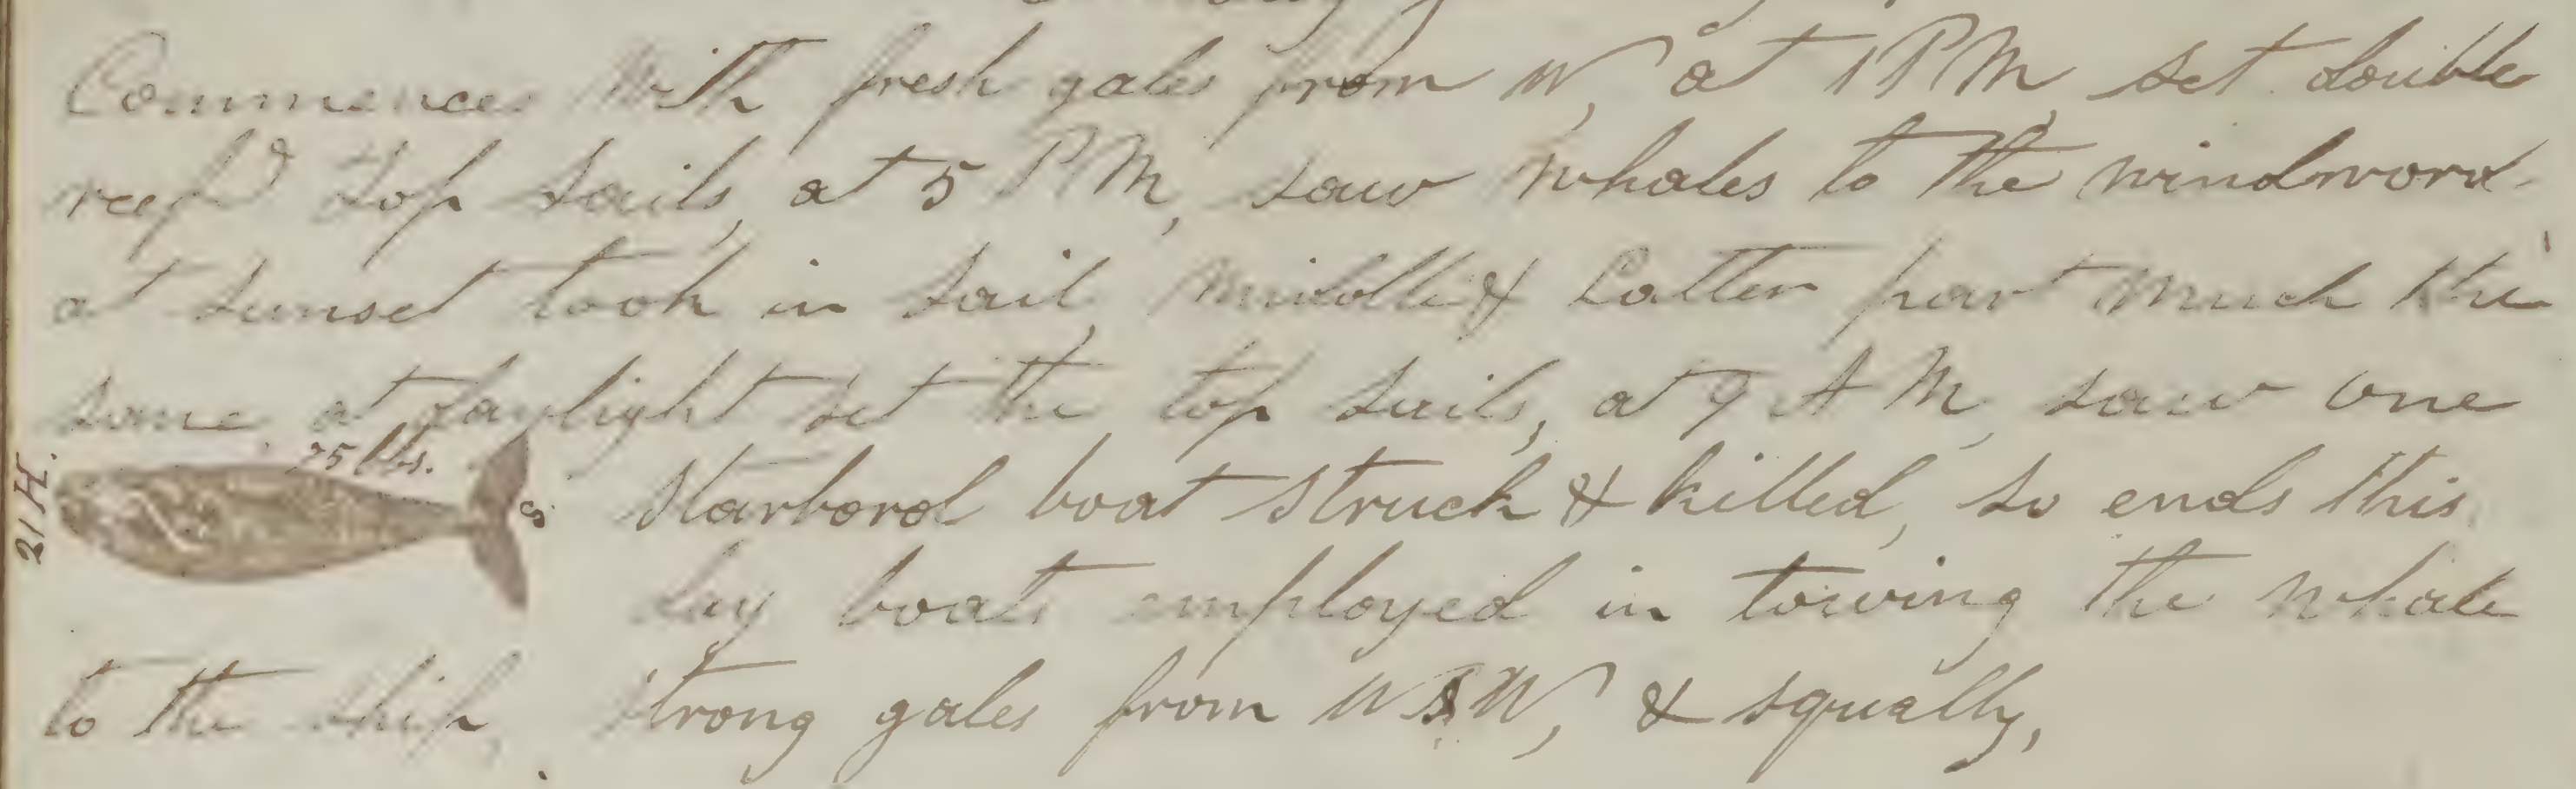 Commences With fresh gales from W, at 1 PM, set double
reef'd top sails, at 5 PM, saw Whales to the windword
at sunset took in sail, Middle & Latter part much the
same at daylight set the top sails, at 9 A M, saw one
75 bbs.
21 H.
Starbord boat struck & killed, so ends this
day boats employed in towing the whale
to the ship, strong gales from WSW, & squally,